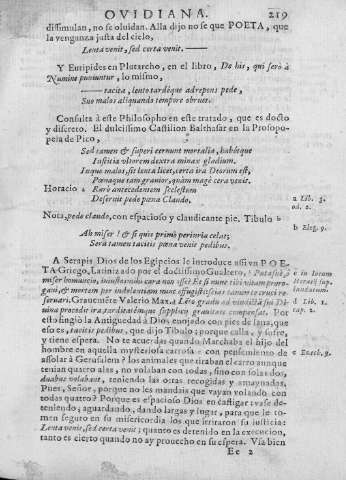 OVIDIANA. 219
dissimulan, no se oluidan. Alla dijo no se que POETA, que
la venganza justa del cielo,
Lenta venit, sed certa venit. ——
Y Euripides en Plutarcho, en el libro, De his, qui serò à
Numine puniuntur, lo mismo,
—— tacita, lento tardèque adrepens pede,
Suo malos aliquando tempore obruet.
Consulta à este Philosopho en este tratado, que es docto
y discreto. El dulcissimo Castilion Balthasar en la Prosopo-
peia de Pico,
Sed tamen & superi cernunt mortalia, habétque
Iustitia vltorem dextra minax gladium.
Inque malos, sit lenta licet, certa ira Deorum est,
Pœnaque tam grauior, quàm magè cera venit.
Horacio a Rarò antecedentem scelestum
Deseruit pede pœna Claudo.
a Lib. 3.
od. 2.
Nota, pede claudo, con espacioso y claudicante pie. Tibulo b
b Eleg. 9.
Ah miser! & si quis primò periuria celat;
Sera tamen tacitis pœna venit pedibus.
A Serapis Dios de los Egipcios le introduce assi vn POE-
TA Griego, Latinizado por el doctissimo Gualtero,
c in
d Lib. 1.
cap. 2.
sernari. Grauemẽre Valerio Max. d Lẽto gradu ad vindictã sui Di-
uina procedit ira, tarditatémque supplicij grauitate compensat. Por
esto fingiò la Antiguedad à Dios, enojado con pies de lana, que
eso es, tacitis pedibus, que dijo Tibulo; porque calla, y sufre,
y tiene espera. No te acuerdas quando Marchaba el hijo del
hombre en aquella mysteriosa carrosa e con pensamiento de
e Ezech. 9.
assolar à Gerusalem? los animales que tiraban el carro aunque
tenian quatro alas, no volaban con todas, sino con solas dos,
duabus volabant, teniendo las otras recogidas y amaynadas.
Pues, Señor, porque no les mandais que vayan volando con
todas quatro? Porque es espacioso Dios en castigar: vase de-
teniendo; aguardando, dando largas y lugar, para que le to-
men seguro en su misericordia los que irritaron su justicia:
Lenta venit, sed certa venit; quanto es detenido en la execucion,
tanto es cierto quando no ay prouecho en su espera. Via bien
Ee 2